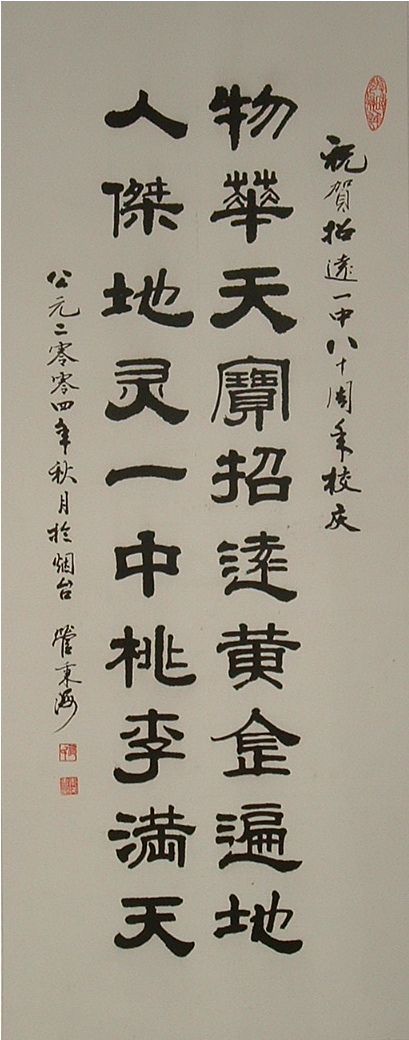 祝賀招遠一中八十周年校庆
物華天寶招遠黄金遍地
人傑地灵一中桃李満天
公元二零零四年秋月於烟台 管秉海